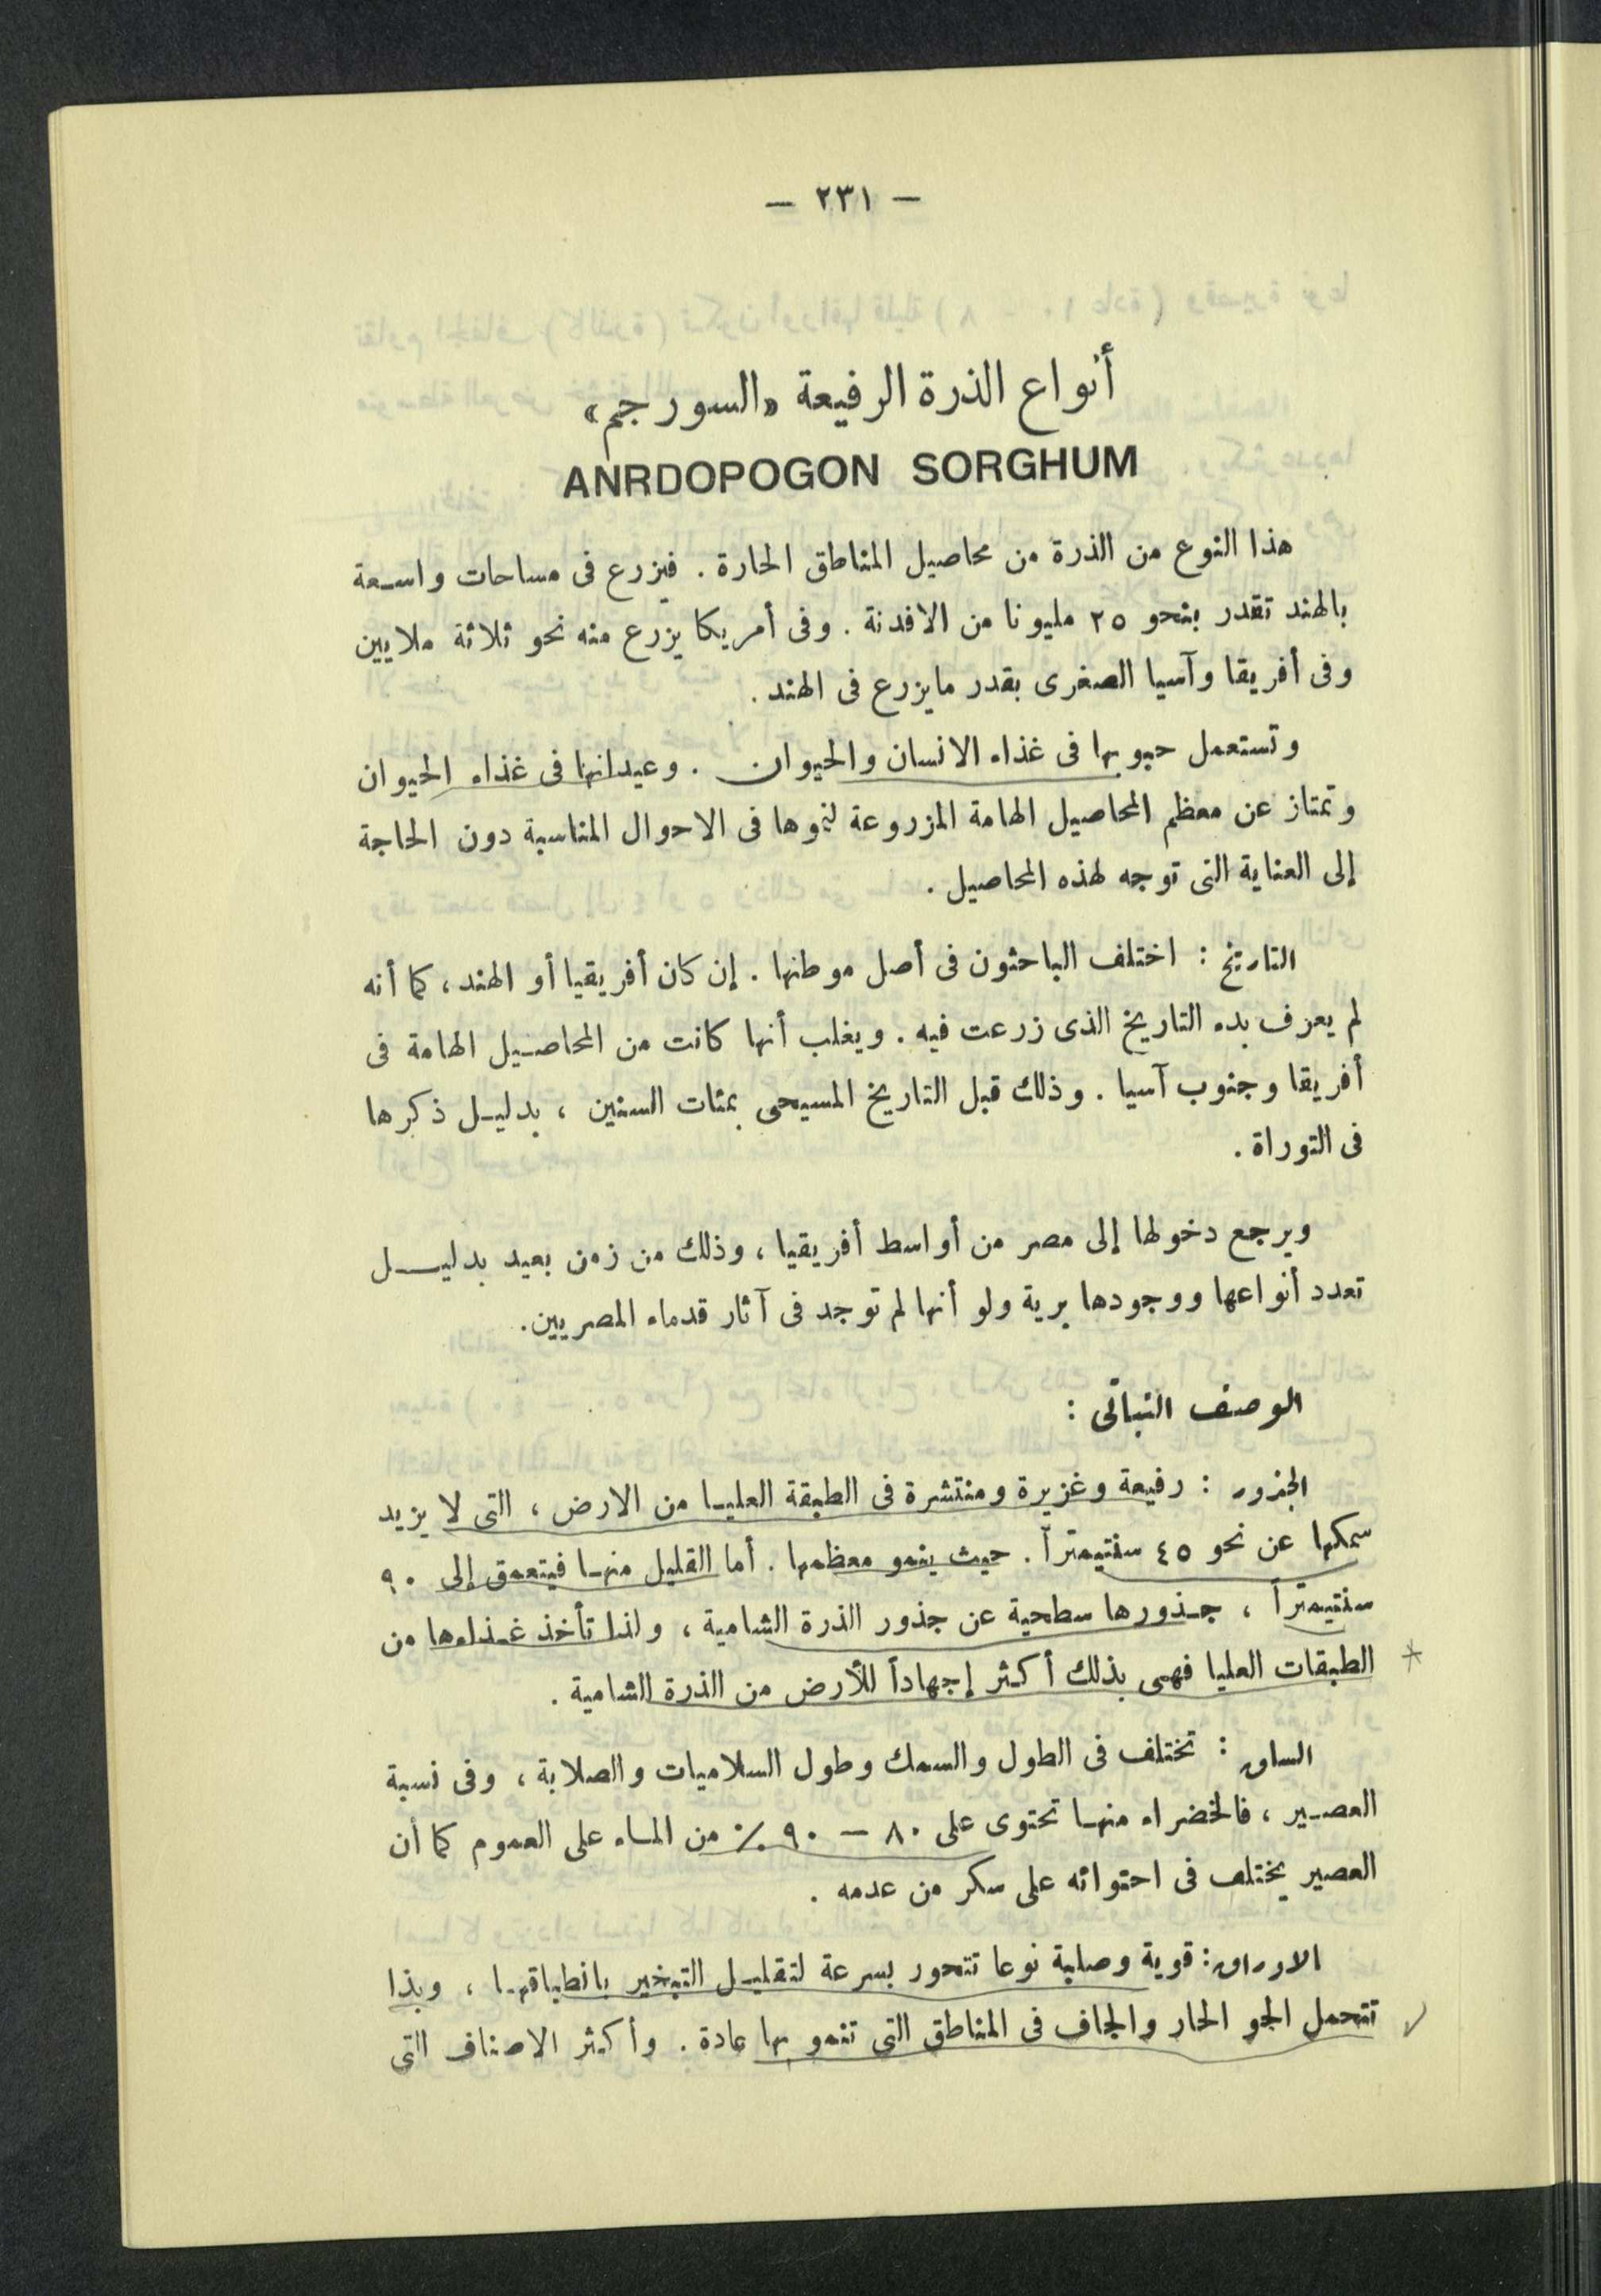 — ٢٣١ —
أنواع الذرة الرفيعة «السورجم»
ANRDOPOGON SORGHUM
هذا النوع من الذرة من محاصيل المناطق الحارة . فيزرع فى مساحات واسعة
بالهند تقدر بنحو ٢٥ مليونا من الافدنة . وفى أمريكا يزرع منه نحو ثلاثة ملايين
وفى أفريقا وآسيا الصغرى بقدر مايزرع فى الهند .
وتستعمل حبوبها فى غذاء الانسان والحيوان . وعيدانها فى غذاء الحيوان
وتمتاز عن معظم المحاصيل الهامة المزروعة لنموها فى الاحوال المناسبة دون الحاجة
إلى العناية التى توجه لهذه المحاصيل .
التاريخ : اختلف الباحثون فى أصل موطنها . إن كان أفريقيا أو الهند ، كما أنه
لم يعرف بدء التاريخ الذى زرعت فيه . ويغلب أنها كانت من المحاصيل الهامة فى
أفريقا وجنوب آسيا . وذلك قبل التاريخ المسيحى بمئات السنين ، بدليل ذكرها
فى التوراة .
ويرجع دخولها إلى مصر من أواسط أفريقيا ، وذلك من زمن بعيد بدليل
تعدد أنواعها ووجودها برية ولو أنها لم توجد فى آثار قدماء المصريين.
الوصف النباتى :
الجذور : رفيعة وغزيرة ومنتشرة فى الطبقة العليا من الارض ، التى لا يزيد
سمكها عن نحو ٤٥ سنتيمتراً . حيث ينمو معظمها . أما القليل منها فيتعمق إلى ٩٠
سنتيمتراً ، جذورها سطحية عن جذور الذرة الشامية ، ولذا تأخذ غذاءها من
الطبقات العليا فهى بذلك أكثر إجهاداً للأرض من الذرة الشامية .
الساق : تختلف فى الطول والسمك وطول السلاميات والصلابة ، وفى نسبة
العصير ، فالخضراء منها تحتوى على ٨٠ — ٩٠ ٪ من الماء على العموم كما أن
العصير يختلف فى احتوائه على سكر من عدمه .
الاوراق: قوية وصلبة نوعا تتحور بسرعة لتقليل التبخير بانطباقها ، وبذا
تتحمل الجو الحار والجاف فى المناطق التى تنمو بها عادة . وأكثر الاصناف التى